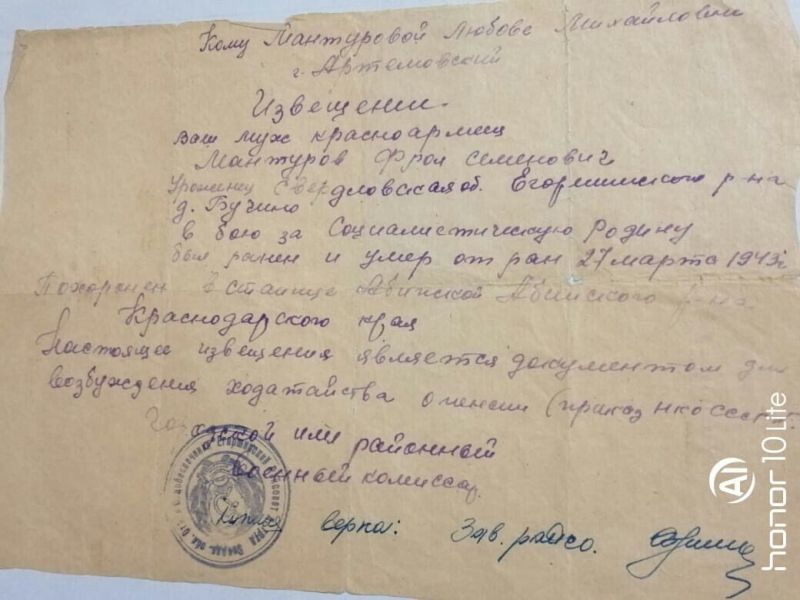 Кому Мантуровой Любове Михайловни
г. Артемовский
Извещении.
Ваш муж красноармиц
Мантуров Фрол Семенович
Уроженец Свердловская об. Егоршинского р-на
д. Бучино
в бою за Социалистическую Родину
был ранен и умер от ран 27 марта 1943г
Похоронен в станице Абинской Абинского р-на
Краснодарского края
Настоящее извещения является документом для
возбуждения ходатайства о пенсии (приказ НКО СССР
Городской или районный
Военный комиссар.
Копия верна: Зав. райсо.
AI
honor 10 Lite